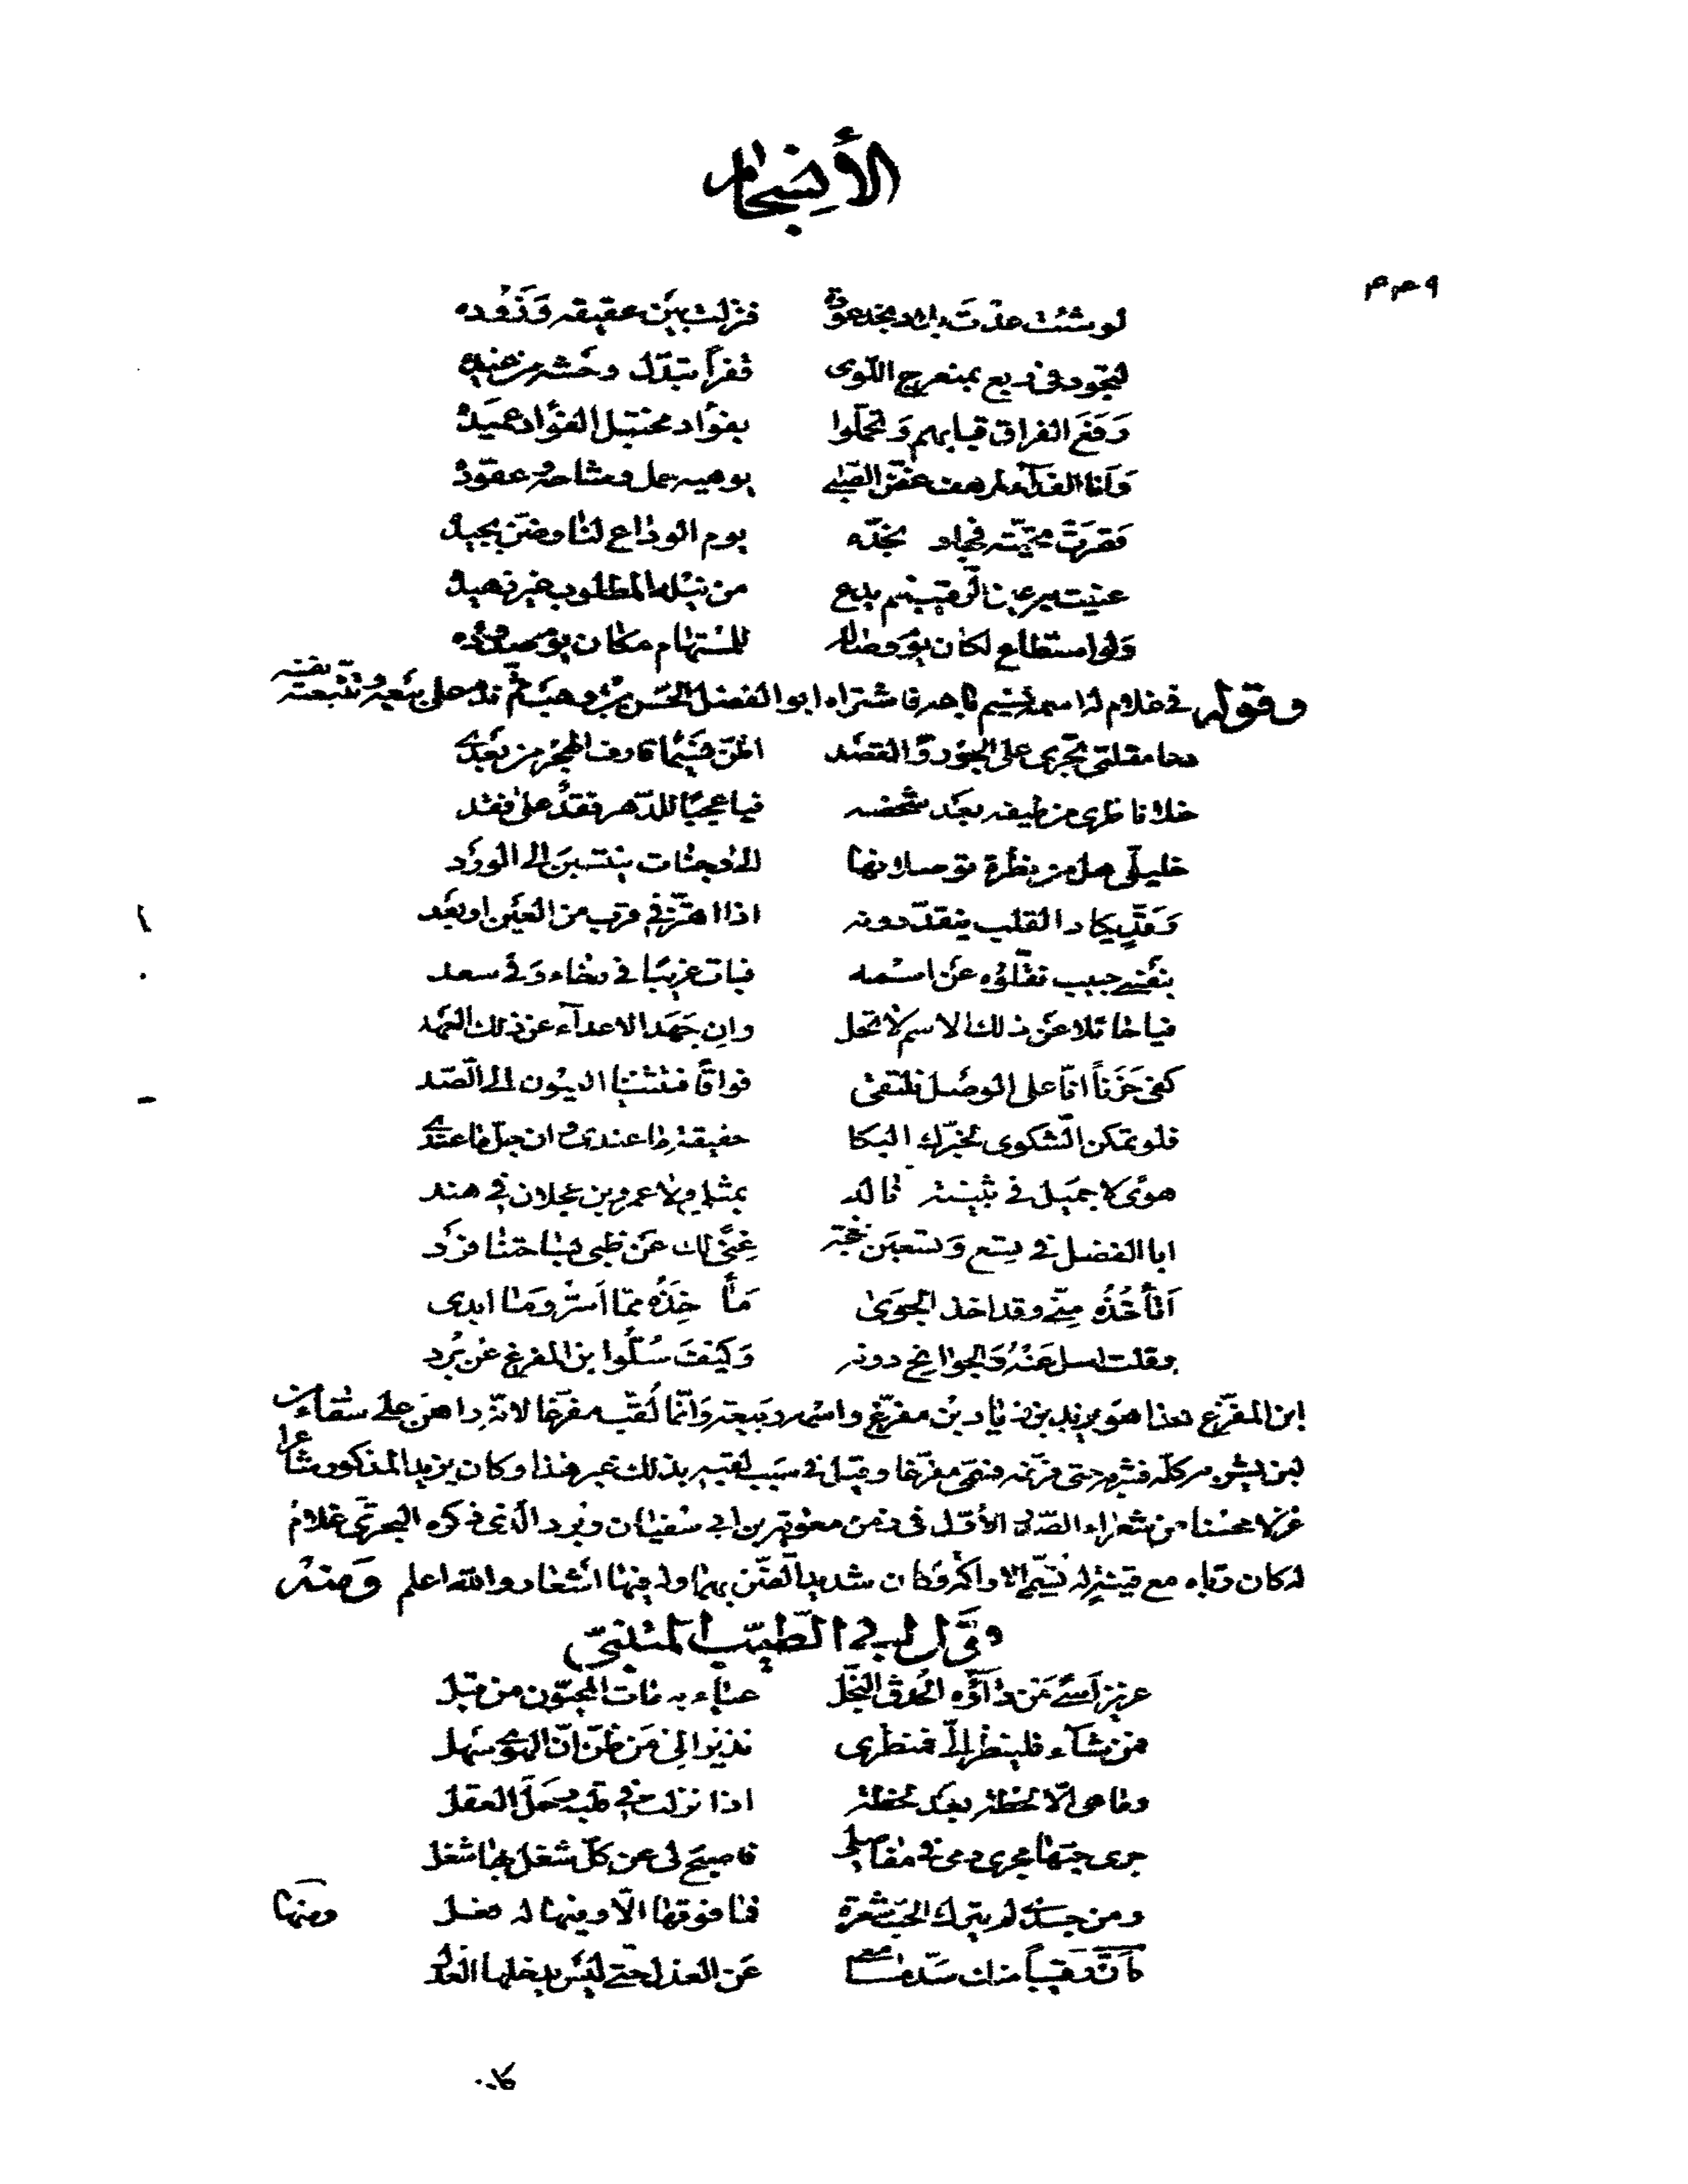 الأنسجام
لو شئت عدت بلاد نجد عودة فنزلت بين عقيقه وزروده
لتجود في ربع بمنعرج اللوى قفراً تبدّل وحشه من غيده
رفع الفراق قبابهم وتحمّلوا بفؤاد مختبل الفؤاد عميده
وأنا الفدآء لمرهف غضّ الصّبى يوهيه حمل وشاحه وعقوده
قصرت تحيّته فجاد بخدّه يوم الوداع لنا وضنّ بجيده
عنيت به عين الرّقيب فلم يدع من نيله المطلوب غير زهيده
ولو استطاع لكان يوم وصاله للمستهام مكان يوم صدوده
وقوله في غلام له اسمه نسيم كان باعه فاشتراه ابو الفضل الحسن بن وهب ثم ندم على بيعه وتتبعته نفسه
دعا مقلتي تجري على الجور والقصد اظنّ نسيما قارف الهجر من بعدي
خلا ناظري من طيفه بعد شخصه فيا عجبًا للدّهر فقدٌ على فقد
خليلّي هل من نظرة توصلانها الى وجنات ينتسبن الى الورد
وقدٍّ يكاد القلب ينقدّ دونه اذا اهتزّ في قرب من العين او بعد
بنفسي حبيب نقلّوه عن اسمه فبات غريبًا في رخاء وفي سعد
فيا خائلا عن ذلك الاسم لا تحل وان جهد الاعداء عن ذلك العهد
كفى حزناً انّا على الوصل نلتقي فواقًا فتثنينا العيون الى الصّد
فلو تمكن الشكوى لخبّرك البكا حقيقة ما عندي وان جلّ ما عندي
هوى لا جميل في بثينة ناله بمثلي ولا عمرو بن عجلان في هند
ابا الفضل في تسع وتسعين نعجة غنى لك عن ظبي بساحتنا فرد
أتأخذه منّي وقد اخذ الجوى مآخذه ممّا اسرّ وما ابدى
وقلت اسل عنه والجوانح دونه وكيف سلوّ ابن المفرغ عن برد
ابن المفرّغ هذا هو يزيد بن زياد بن مفرّغ واسمه ربيعة وانّما لُقّب مفرّغا لانّه راهن على سقاء من
لبن يشربه كلّه فشربه حتى فرّغه فسمّي مفرّغا وقيل في سبب لقبه بذلك غير هذا وكان يزيد المذكور شاعرا
غزلا محسنا من شعراء الصّدر الأوّل في زمن معوية بن ابي سفيان وبُرد الذي ذكره البحتري غلامٌ
له كان ربّاه مع قينةٍ له تسمّى الاراكة وكان شديد الضّن بهما وله فيهما اشعار والله اعلم ومنه
وقول ابي الطيّب المتنبّي
عزيز أسى من دآؤه الحدق النّجل عياء به مات المحبّون من قبل
فمن شاء فلينظر إليّ فمنظري نذير الى من ظنّ انّ الهوى سهل
وما هي الّا لحظة بعد لحظة اذا نزلت في قلبه رحل العقل
جرى حبّها مجرى دمي في مفاصلي فاصبح لي عن كلّ شغل بها شغل
ومن جسدي لم يترك الحبّ شعرة فما فوقها الّا وفيها له فعل
ومنها
كأنّ رقيباً منك سدّ مسامعي عن العذل حتى ليس يدخلها العذل